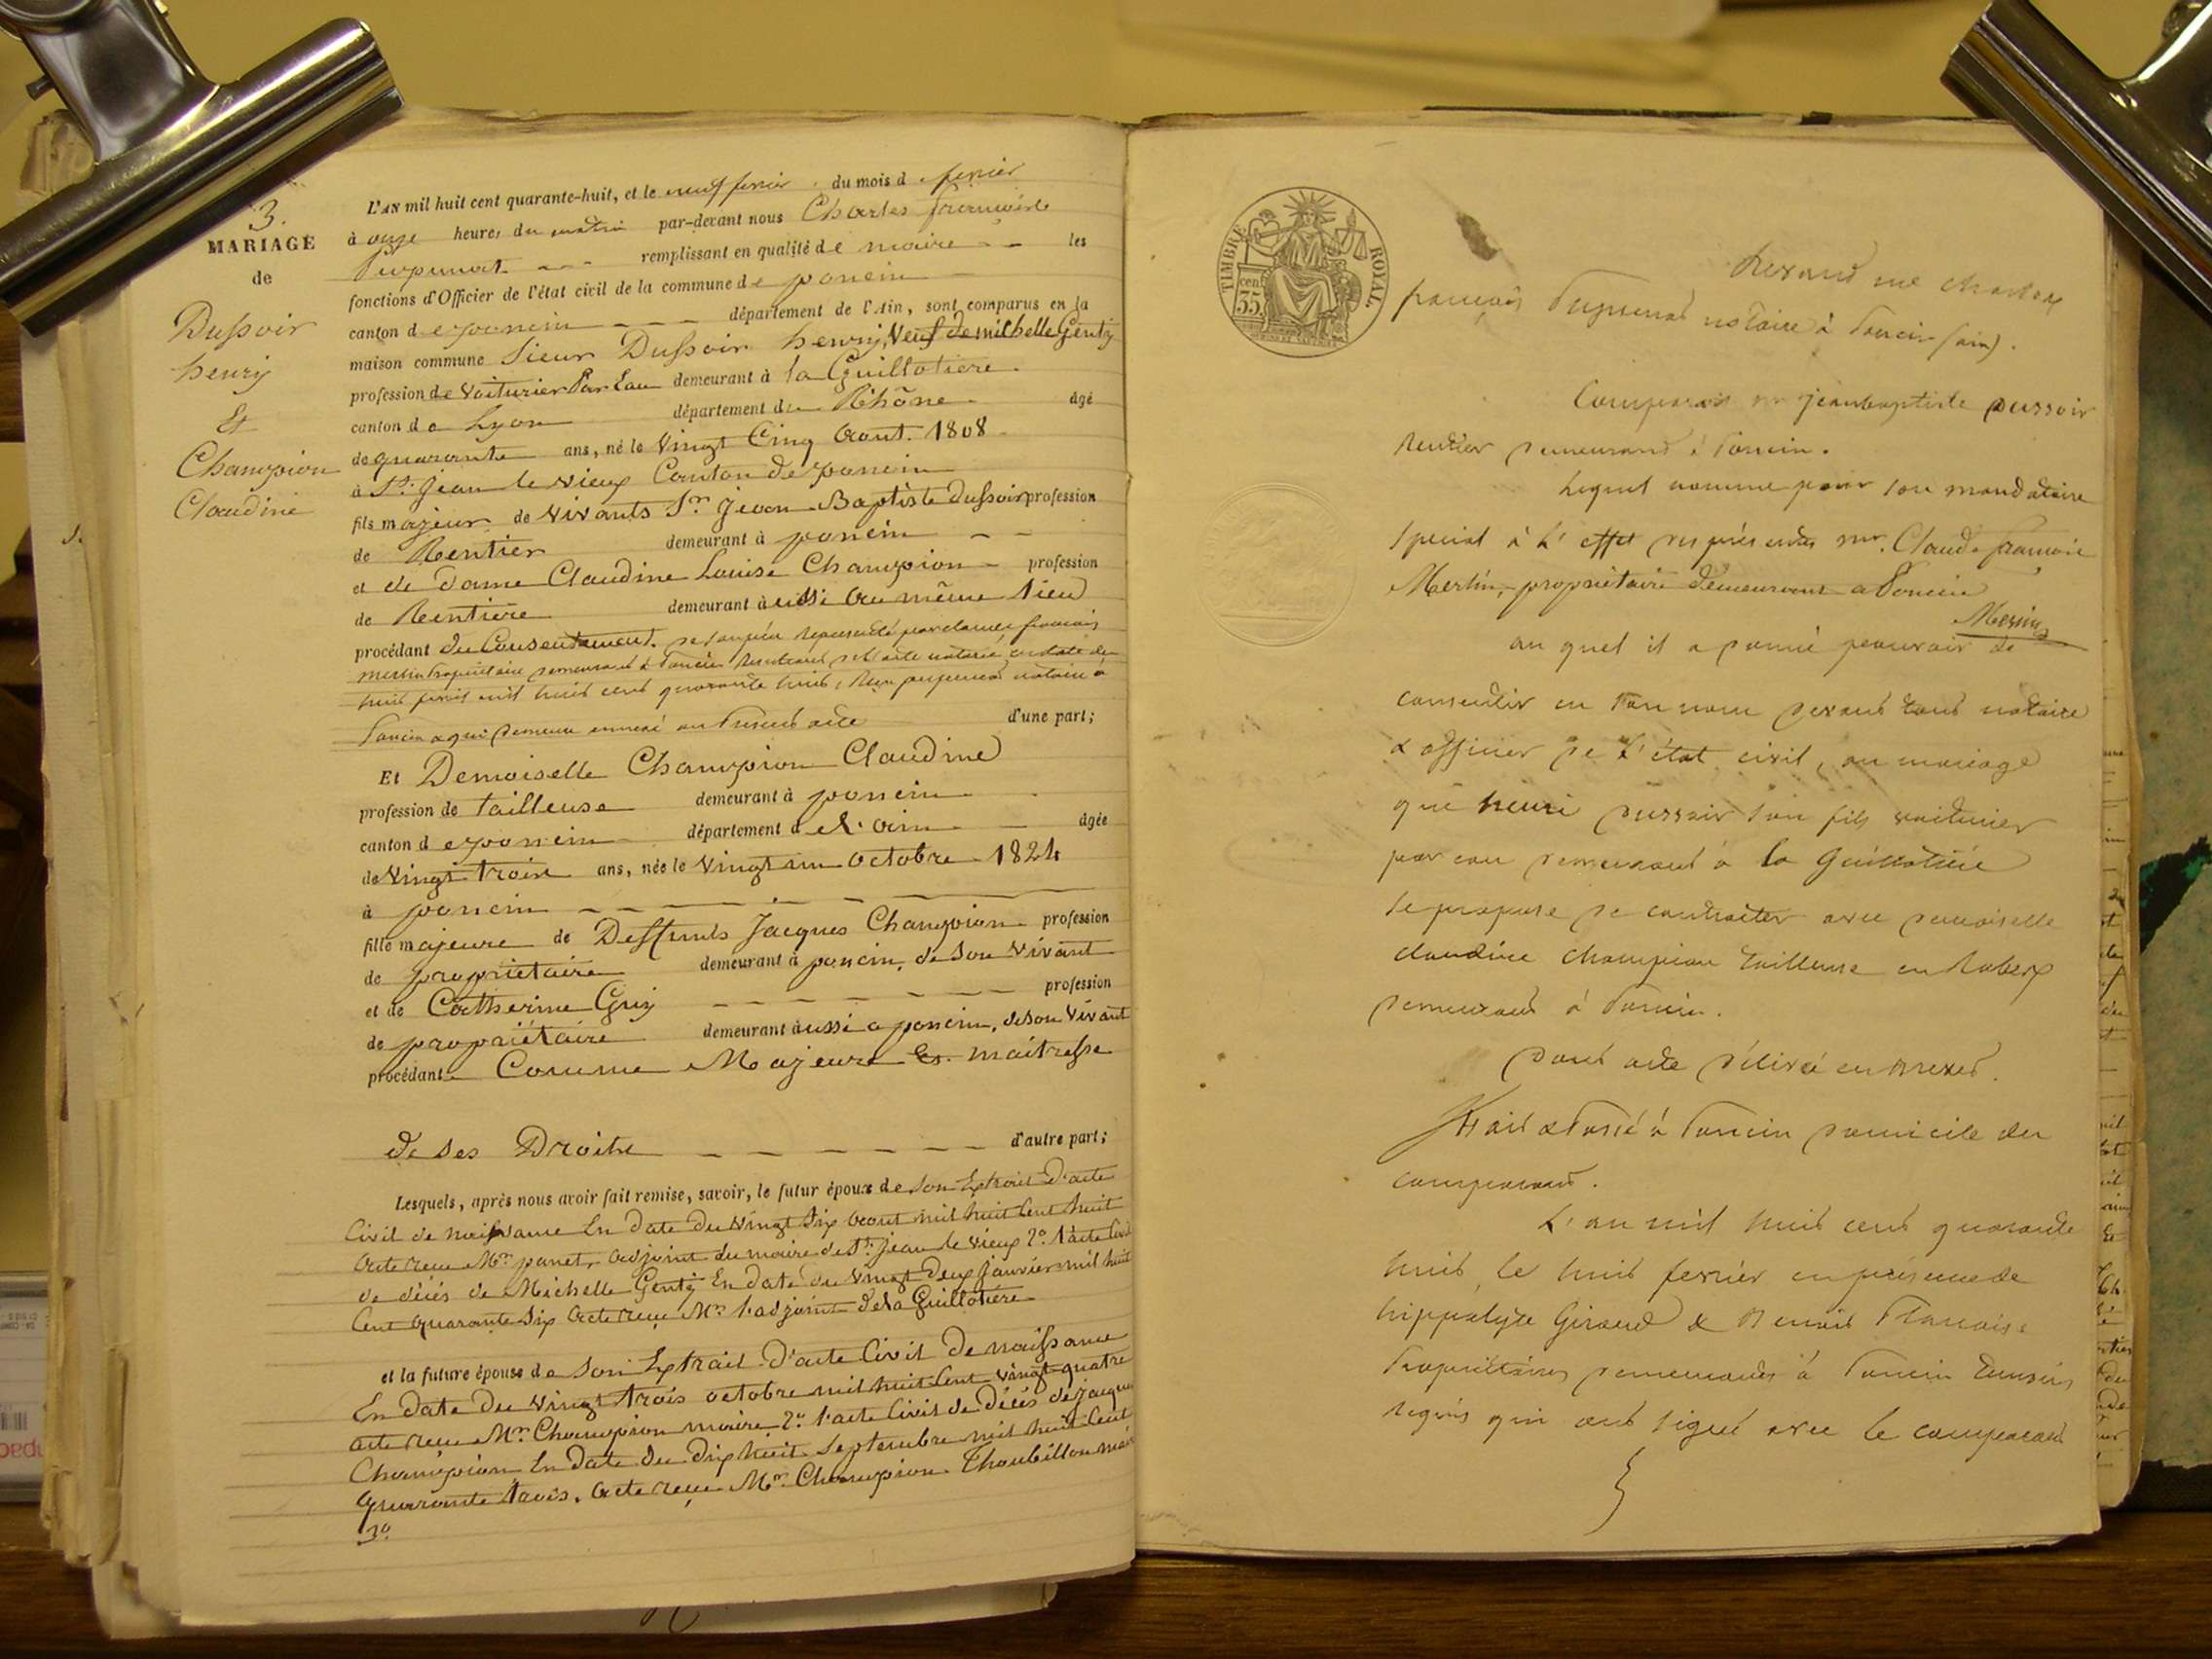 3.
MARIAGE
de
Dussoir
henry
Et
Champion
Claudine
L'AN mil huit cent quarante-huit, et le neuf fevrier du mois d fevrier
à onze heures du matin par-devant nous Charles francois
remplissant en qualité de maire les
fonctions d'Officier de l'état civil de la commune de poncin
canton de poncin département de l'Ain, sont comparus en la
maison commune Sieur Dussoir henry, Veuf de michelle Genty
profession de Voiturier Par Eau demeurant à la Guillotiere
canton de Lyon département du Rhône agé
de quarante ans, né le Vingt Cinq Aout 1808
à St. Jean le vieux Canton de poncin
fils majeur de vivants Sr. Jean-Baptiste Dussoir profession
de Rentier demeurant à poncin
et de Dame Claudine Louise Champion profession
de Rentière demeurant àussi au même lieu
procédant du Consentement de son père représenté par claude francois
merlin propriétaire demeurant à Poncin résultant de l'acte notarié en date du
huit fevrier mil huit cent quarante huit, notaire à
Poncin & qui demeure annexé au présent acte d'une part;
Et Demoiselle Champion Claudine
profession de tailleuse demeurant à poncin
canton de poncin département de l'ain agée
de Vingt trois ans, née le Vingt un octobre 1824
à poncin
fille majeure de Deffunts Jacques Champion profession
de propriétaire demeurant à poncin, de son vivant
et de Catherine Guy profession
de propriétaire demeurant àussi a poncin, de son vivant
procédant Comme Majeure Et maitresse
de ses Droits d'autre part;
Lesquels, après nous avoir fait remise, savoir, le futur époux de son Extrait d'acte
Civil de naissance En date du vingt six aout mil huit Cent huit
acte reçu Mr. panet, adjoint du maire de St. jean le vieux 2º. l'acte Civil
de décès de Michelle Genty En date du vingt deux janvier mil huit
Cent quarante six acte reçu Mr. l'adjoint de la Guillotiére
et la future épouse de son Extrait d'acte Civil de naissance
En date du vingt trois octobre mil huit Cent vingt quatre
acte reçu Mr. Champion maire, 2º. l'acte Civil de décès de jacques
Champion En date du dix huit septembre mil huit Cent
quarante trois, acte reçu Mr. Champion Thoubillon maire
3º
TIMBRE ROYAL
cent. 35.
Devant me charles
françois notaire à Poncin (ain).
Comparait mr jean baptiste Dussoir
rentier demeurant à Poncin.
Lequel nomme pour son mandataire
special à l'effet des présentes mr. Claude francois
Merlin, propriétaire demeurant a Poncin
au quel il a donné pouvoir de
consentir en son nom devant tous notaire
& officier de l'état civil, au mariage
que henri Dussoir son fils voiturier
par eau demeurant à la Guillotière
se propose de contracter avec demoiselle
claudine champion tailleuse en Robes
demeurant à Poncin.
Dont acte délivré en brevet.
Fait & Passé à Poncin domicile du
comparant.
L'an mil huit cent quarante
huit le huit fevrier en présence de
hippolyte Giraud & Benoit
Propriétaires demeurants à Poncin témoins
requis qui ont signé avec le comparant